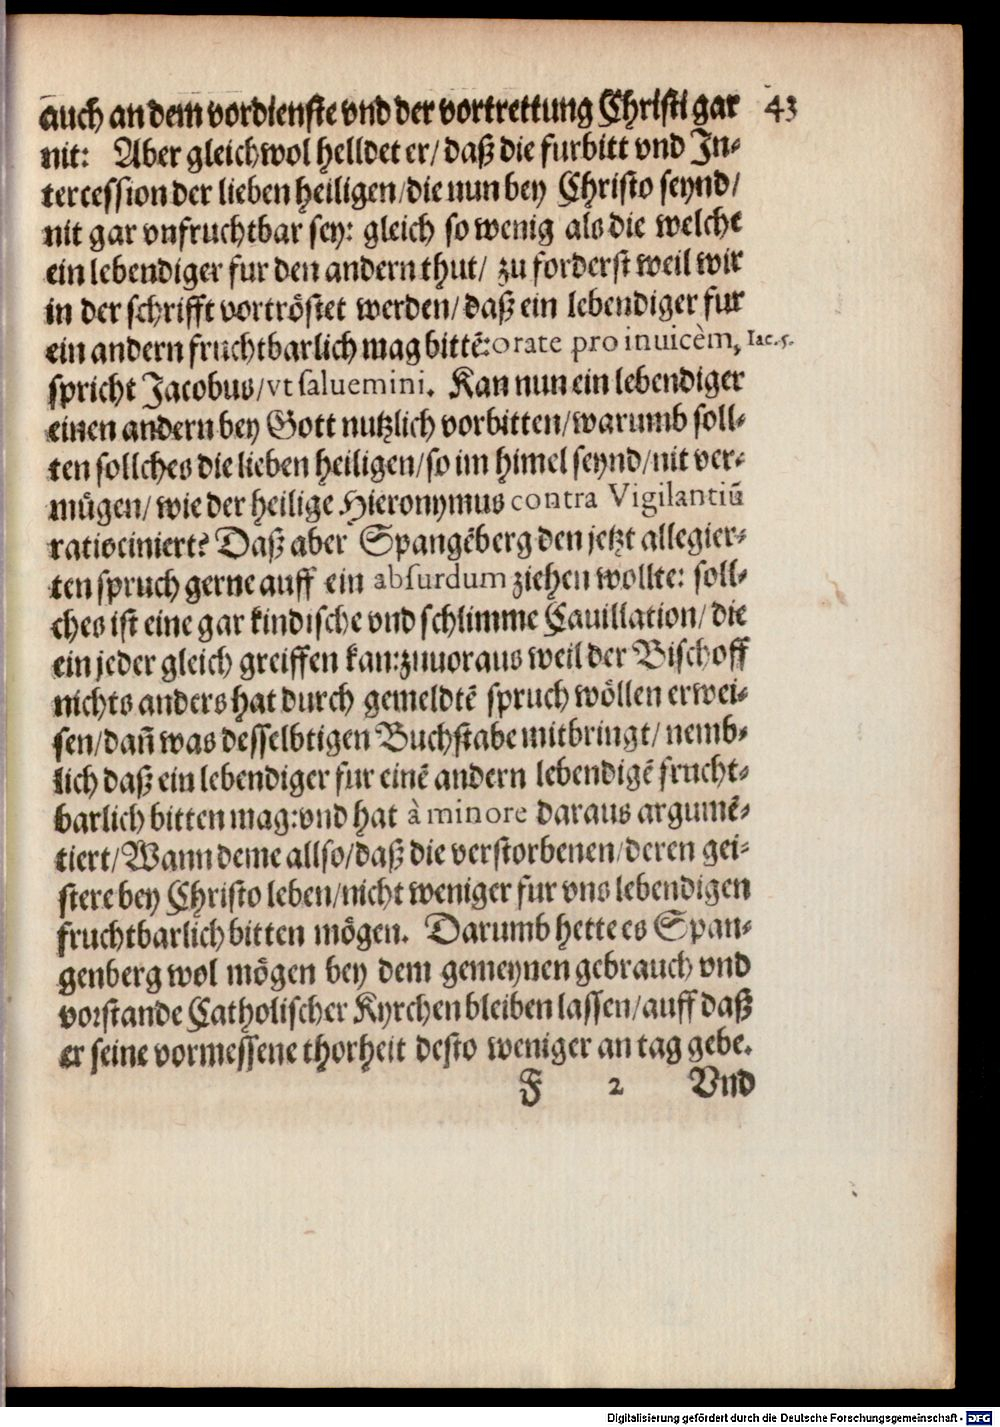 auch an dem vordienste vnd der vortrettung Christi gar 43
nit: Aber gleichwol helldet er/ daß die furbitt vnd In-
tercession der lieben heiligen/die nun bey Christo seynd/
nit gar vnfruchtbar sey: gleich so wenig als die welche
ein lebendiger fur den andern thut/ zu forderst weil wir
in der schrifft vortröstet werden/ daß ein lebendiger fur
ein andern fruchtbarlich mag bittē: orate pro inuicèm, Iac.5.
spricht Jacobus/ vt saluemini. Kan nun ein lebendiger
einen andern bey Gott nutzlich vorbitten/warumb soll-
ten sollches die lieben heiligen/so im himel seynd/nit ver-
mügen/ wie der heilige Hieronymus contra Vigilantiū
ratiociniert? Daß aber Spangēberg den jetzt allegier-
ten spruch gerne auff ein absurdum ziehen wollte: soll-
ches ist eine gar kindische vnd schlimme Cauillation/ die
ein jeder gleich greiffen kan: zuuoraus weil der Bischoff
nichts anders hat durch gemeldtē spruch wöllen erwei-
sen/ dañ was desselbtigen Buchstabe mitbringt/ nemb-
lich daß ein lebendiger fur einē andern lebendigē frucht-
barlich bitten mag: vnd hat à minore daraus argumē-
tiert/ Wann deme allso/daß die verstorbenen/deren gei-
stere bey Christo leben/nicht weniger fur vns lebendigen
fruchtbarlich bitten mögen. Darumb hette es Span-
genberg wol mögen bey dem gemeynen gebrauch vnd
vorstande Catholischer Kyrchen bleiben lassen/auff daß
er seine vormessene thorheit desto weniger an tag gebe.
F 2 Vnd
Digitalisierung gefördert durch die Deutsche Forschungsgemeinschaft - DFG